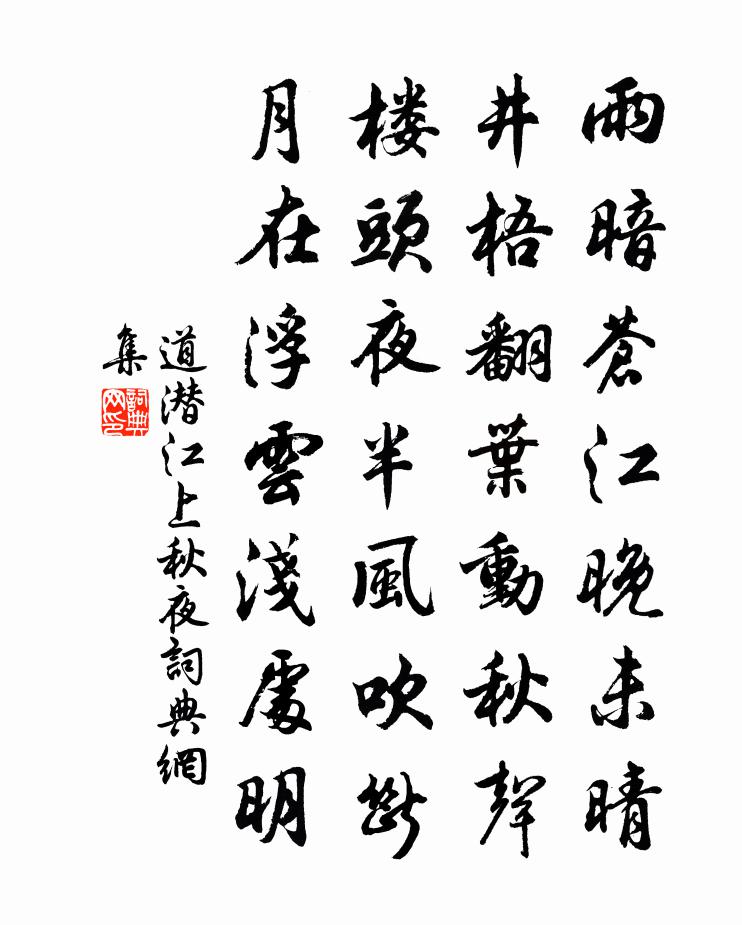 雨暗蒼江晚未晴
井梧翻葉動秋聲
楼頭夜半風吹斷
月在浮雲淺處明
道潛江上秋夜詞典網
集
詞典
网印